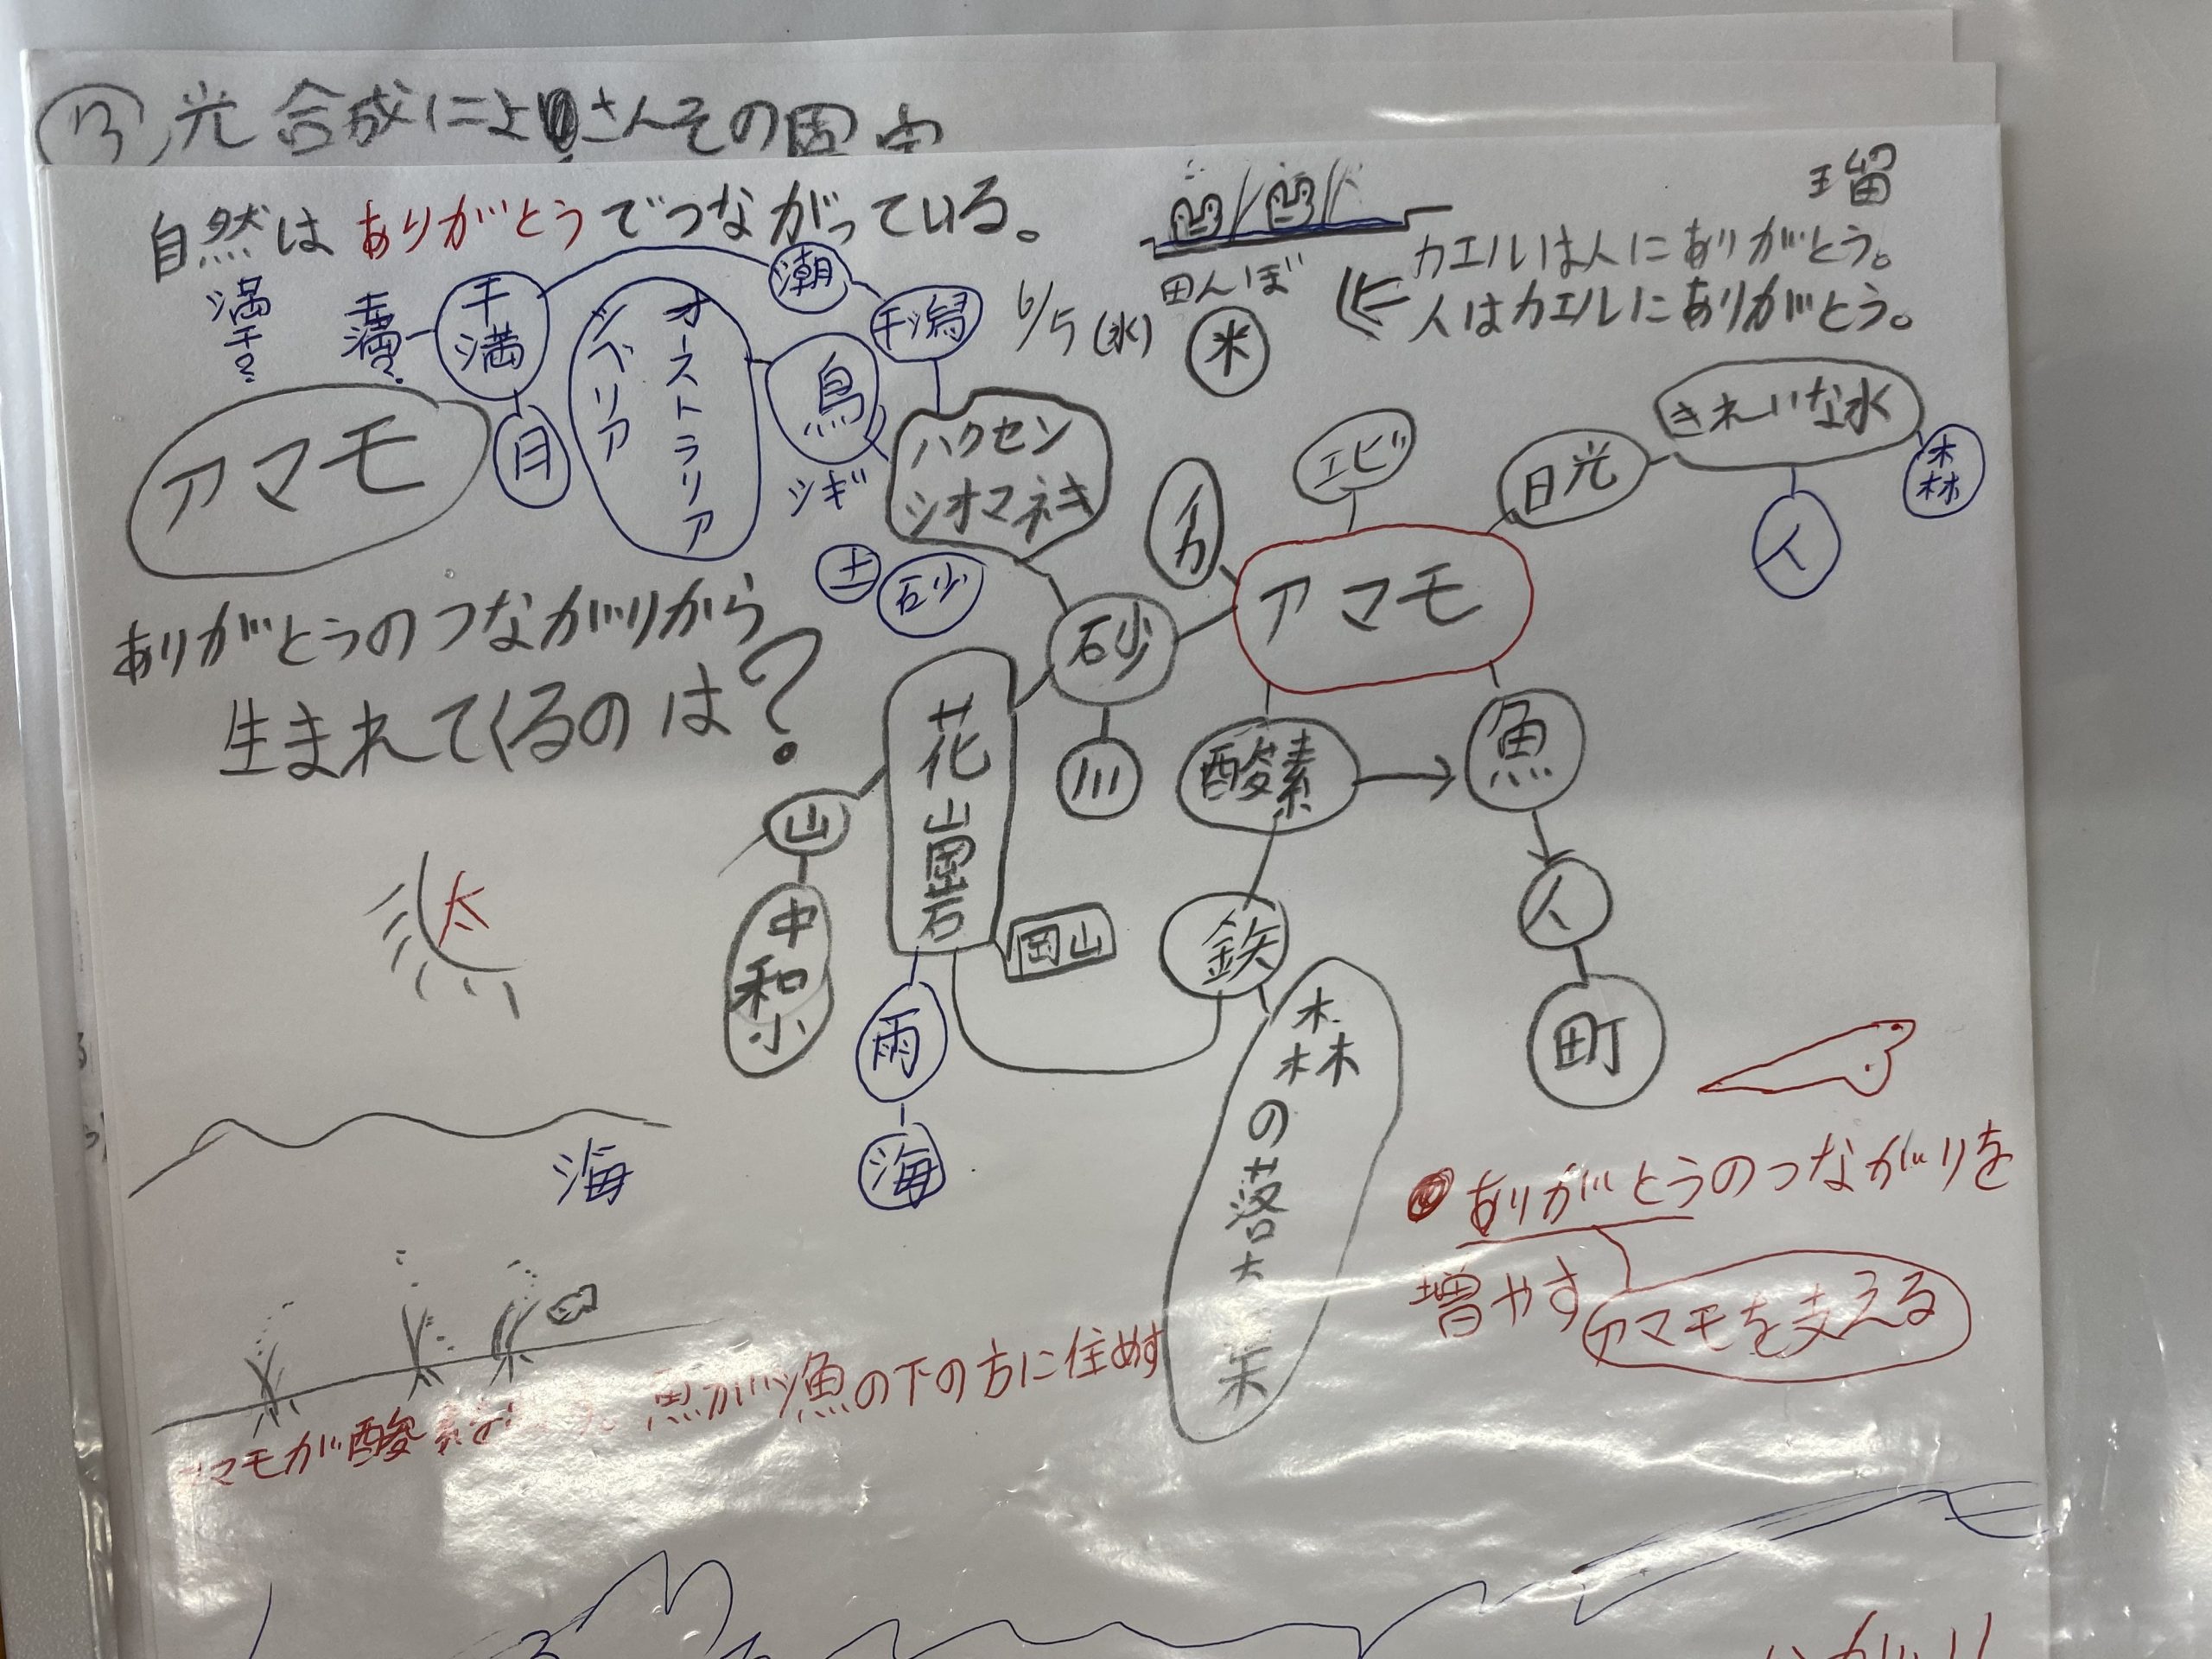 光合成によりさんその
自然はありがとうでつながっている。
瑠
カエルは人にありがとう。
人はカエルにありがとう。
田んぼ
米
6/5(水)
満干?
干満?
干満
潮
干潟
月
シベリア
オーストラリア
鳥
シギ
ハクセン
シオマネキ
アマモ
土
砂
イカ
エビ
日光
きれいな水
森
人
アマモ
砂
ありがとうのつながりから
生まれてくるのは?
花崗岩
川
酸素
魚
山
中和小
岡山
鉄
人
町
雨
海
森の落
太
海
ありがとうのつながりを
増やす
アマモを支える
マモが酸
魚の下の方に住めす